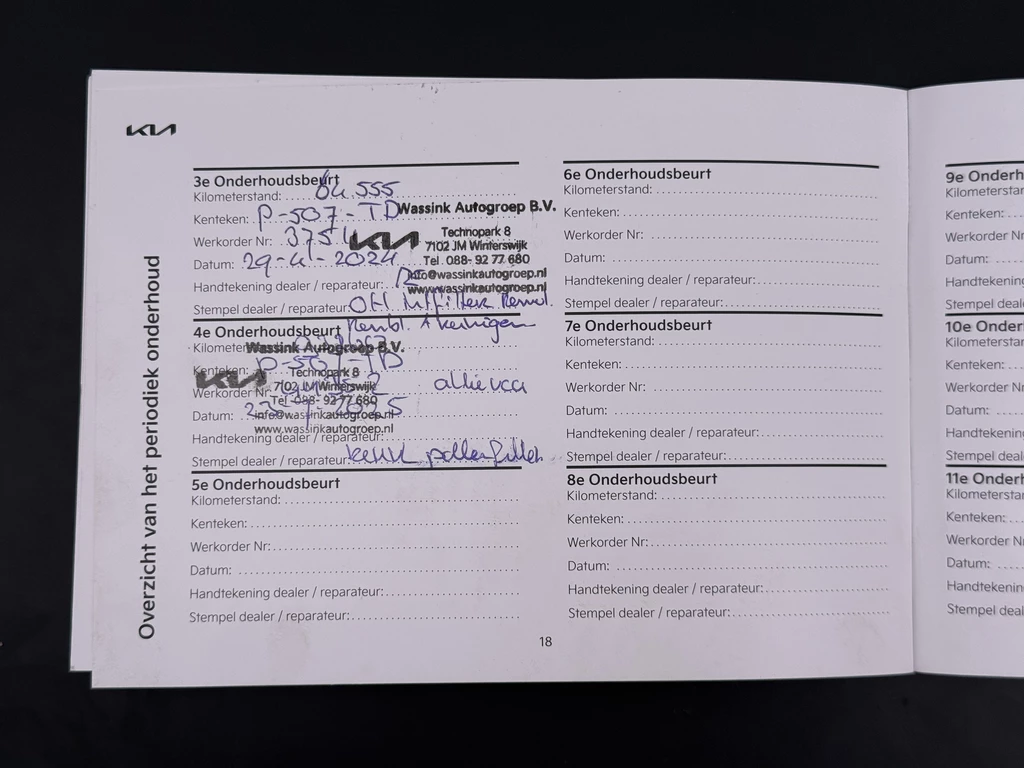 KIA
Overzicht van het periodiek onderhoud
3e Onderhoudsbeurt
Kilometerstand: 64.555
Kenteken: P-507-TD
Werkorder Nr: 3751
Datum: 29-4-2024
Handtekening dealer / reparateur:
Stempel dealer / reparateur:
Wassink Autogroep B.V.
KIA
Technopark 8
7102 JM Winterswijk
Tel. 088- 92 77 680
info@wassinkautogroep.nl
www.wassinkautogroep.nl
4e Onderhoudsbeurt
Kilometer
Kenteken: P-507-TD
Werkorder Nr
Datum:
Handtekening dealer / reparateur:
Stempel dealer / reparateur: pollenfilter
Wassink Autogroep B.V.
KIA
Technopark 8
7102 JM Winterswijk
Tel. 088- 92 77 680
info@wassinkautogroep.nl
www.wassinkautogroep.nl
5e Onderhoudsbeurt
Kilometerstand:
Kenteken:
Werkorder Nr:
Datum:
Handtekening dealer / reparateur:
Stempel dealer / reparateur:
6e Onderhoudsbeurt
Kilometerstand:
Kenteken:
Werkorder Nr:
Datum:
Handtekening dealer / reparateur:
Stempel dealer / reparateur:
7e Onderhoudsbeurt
Kilometerstand:
Kenteken:
Werkorder Nr:
Datum:
Handtekening dealer / reparateur:
Stempel dealer / reparateur:
8e Onderhoudsbeurt
Kilometerstand:
Kenteken:
Werkorder Nr:
Datum:
Handtekening dealer / reparateur:
Stempel dealer / reparateur:
18
9e Onderh
Kilometerstar
Kenteken:
Werkorder Nr
Datum:
Handtekening
Stempel deale
10e Onder
Kilometerstar
Kenteken:
Werkorder N
Datum:
Handtekenin
Stempel deal
11e Onderh
Kilometersta
Kenteken:
Werkorder N
Datum:
Handtekenin
Stempel deal